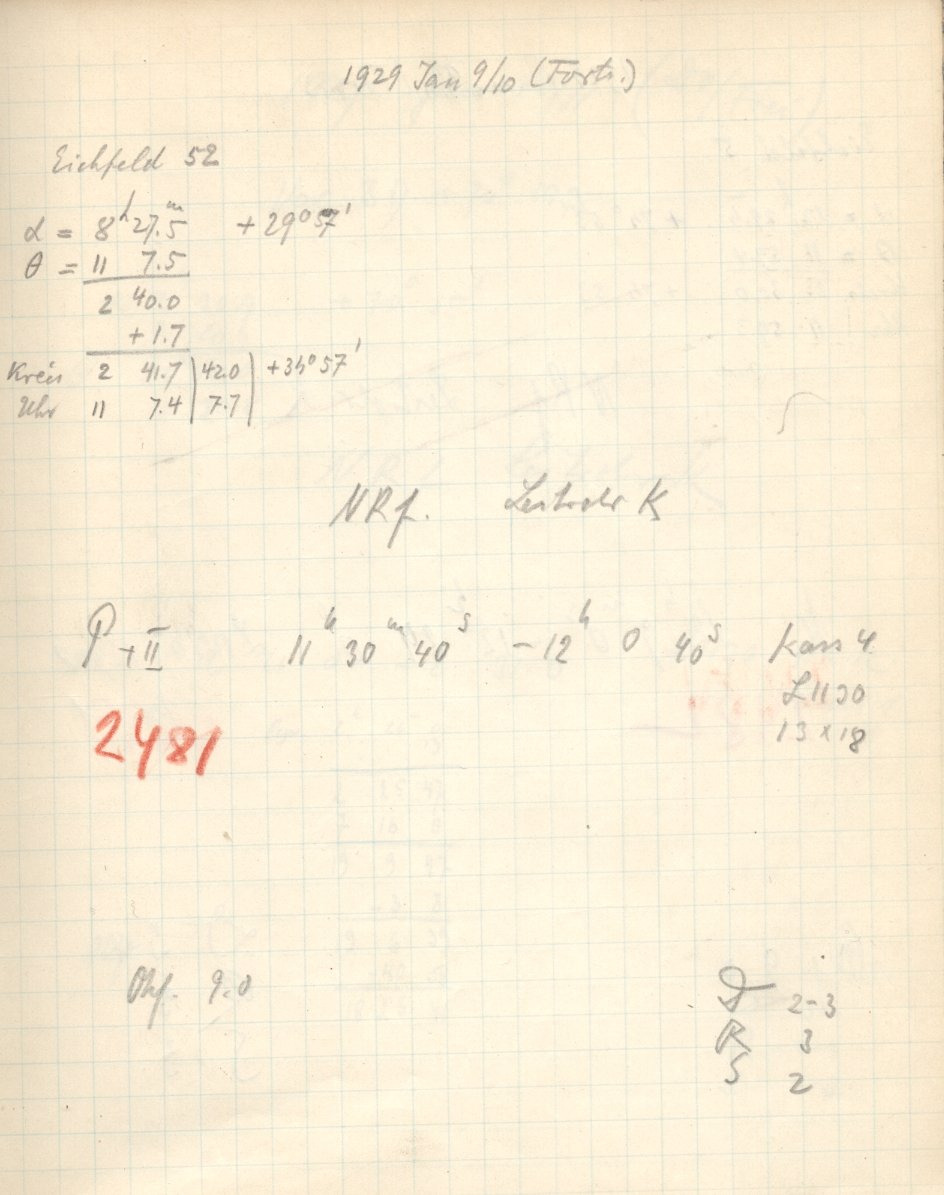 1929 Jan 9/10 (Forts.)
Eichfeld 52
α = 8h 27.5m +29°57'
θ = 11 7.5
2 40.0
+1.7
Kreis 2 41.7 | 42.0 | +34°57'
Uhr 11 7.4 | 7.7 |
NRf. K
P + II 11h 30m 40s – 12h 0 40s Kass 4
L 1130
13 x 18
2481
Okf. 9.0
D 2-3
R 3
S 2